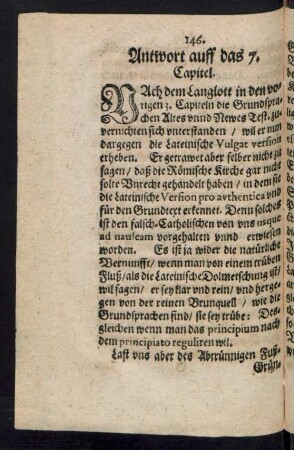 146.
Antwort auff das 7.
Capitel.
NAch dem Langlott in den vo-
rigen 3. Capiteln die Grundspra-
chen Altes vnnd Newes Test. zu-
vernichten sich vnterstanden / wil er nun
dargegen die Lateinische Vulgat version
erheben. Er getrawet aber selber nicht zu
sagen / daß die Römische Kirche gar nicht
solte Vnrecht gehandelt haben / in dem sie
die Lateinische Version pro avthentica vnd
für den Grundtext erkennet. Denn solches
ist den falsch-Catholischen von vns usque
ad nauseam vorgehalten vnnd erwiesen
worden. Es ist ja wider die natürliche
Vernunfft / wenn man von einem trüben
Fluß / als die Lateinische Dolmetschung ist /
wil sagen / er sey klar vnd rein / vnd herge-
gen von der reinen Brunquell / wie die
Grundsprachen sind / sie sey trübe: Des-
gleichen wenn man das principium nach
dem principiato reguliren wil.
Last vns aber des Abtrünnigen Fuß-
Grün-